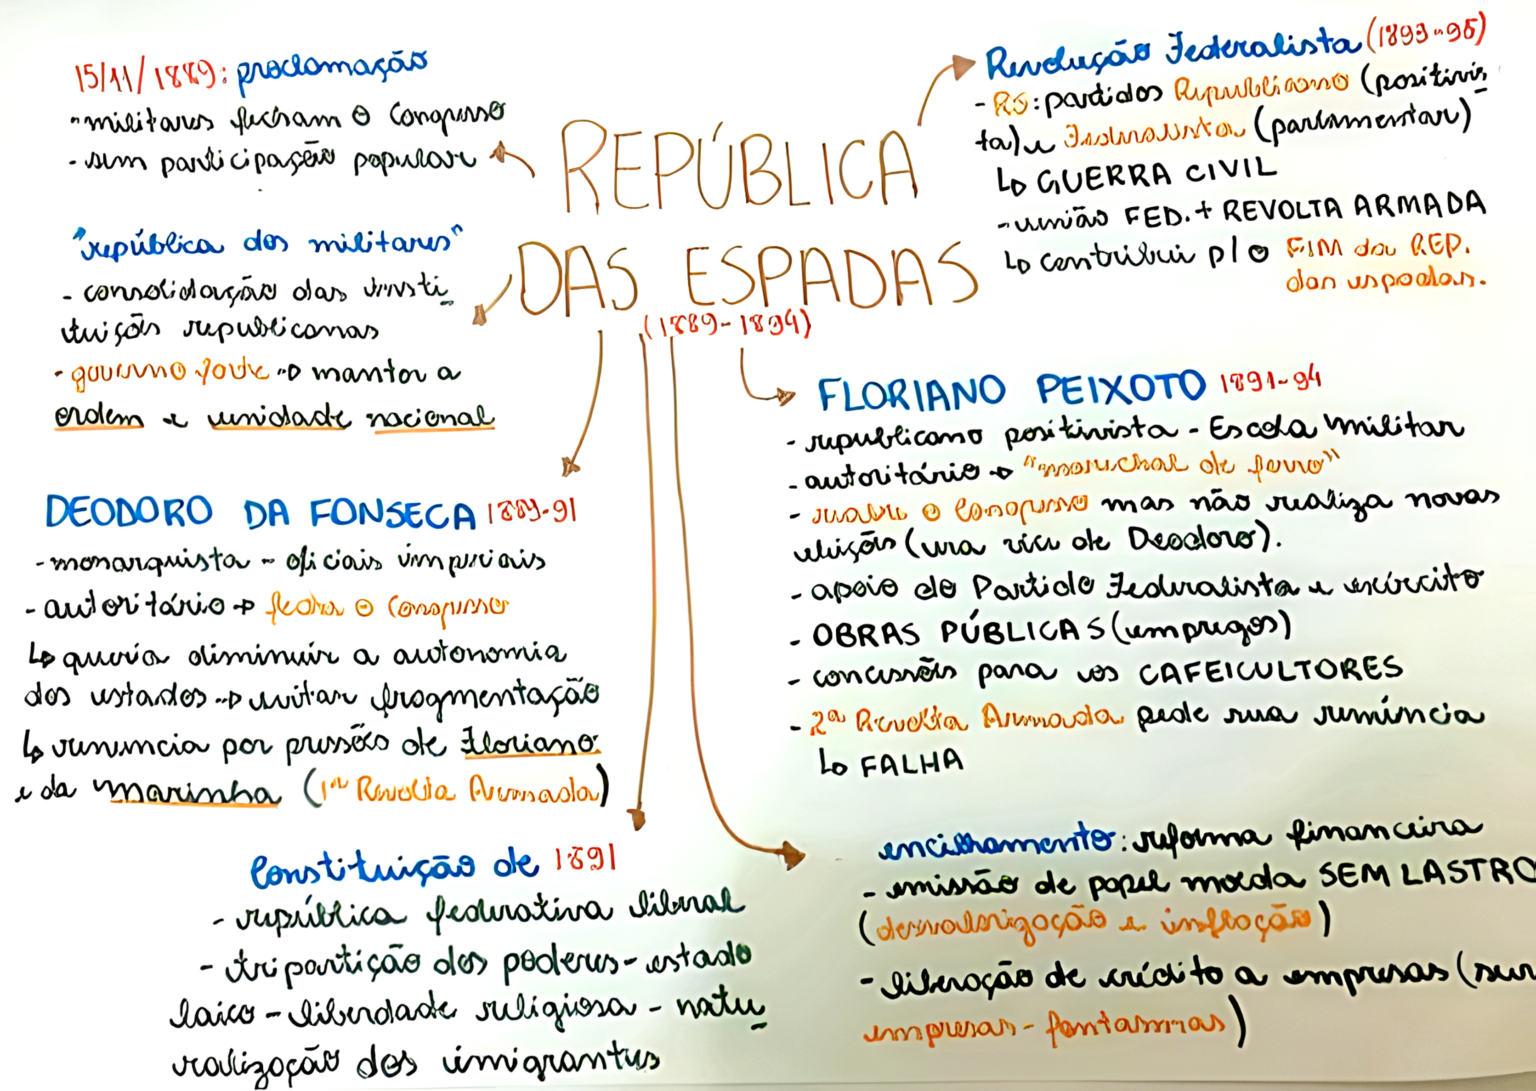 REPÚBLICA
DAS ESPADAS
(1889-1894)
15/11/1889: proclamação
- militares fecham o Congresso
- sem participação popular
"república dos militares"
- consolidação das insti
tuições republicanas
- governo forte → manter a
ordem e unidade nacional
DEODORO DA FONSECA 1889-91
- monarquista - oficiais imperiais
- autoritário → fecha o Congresso
↳ queria diminuir a autonomia
dos estados → evitar fragmentação
↳ renuncia por pressão de Floriano
e da marinha (1ª Revolta Armada)
Constituição de 1891
- república federativa liberal
- tripartição dos poderes - estado
laico - liberdade religiosa - natu
ralização dos imigrantes
Revolução Federalista (1893-95)
- RS: partidos Republicano (positivis
ta) e Federalista (parlamentar)
↳ GUERRA CIVIL
- união FED. + REVOLTA ARMADA
↳ contribui p/ o FIM da REP.
das espadas.
FLORIANO PEIXOTO 1891-94
- republicano positivista - Escola Militar
- autoritário → "marechal de ferro"
- reabre o Congresso mas não realiza novas
eleições (era vice de Deodoro).
- apoio do Partido Federalista e exército
- OBRAS PÚBLICAS (empregos)
- concessões para os CAFEICULTORES
- 2ª Revolta Armada pede sua renúncia
↳ FALHA
encilhamento: reforma financeira
- emissão de papel moeda SEM LASTRO
(desvalorização e inflação)
- liberação de crédito a empresas (sur
empresas-fantasmas)